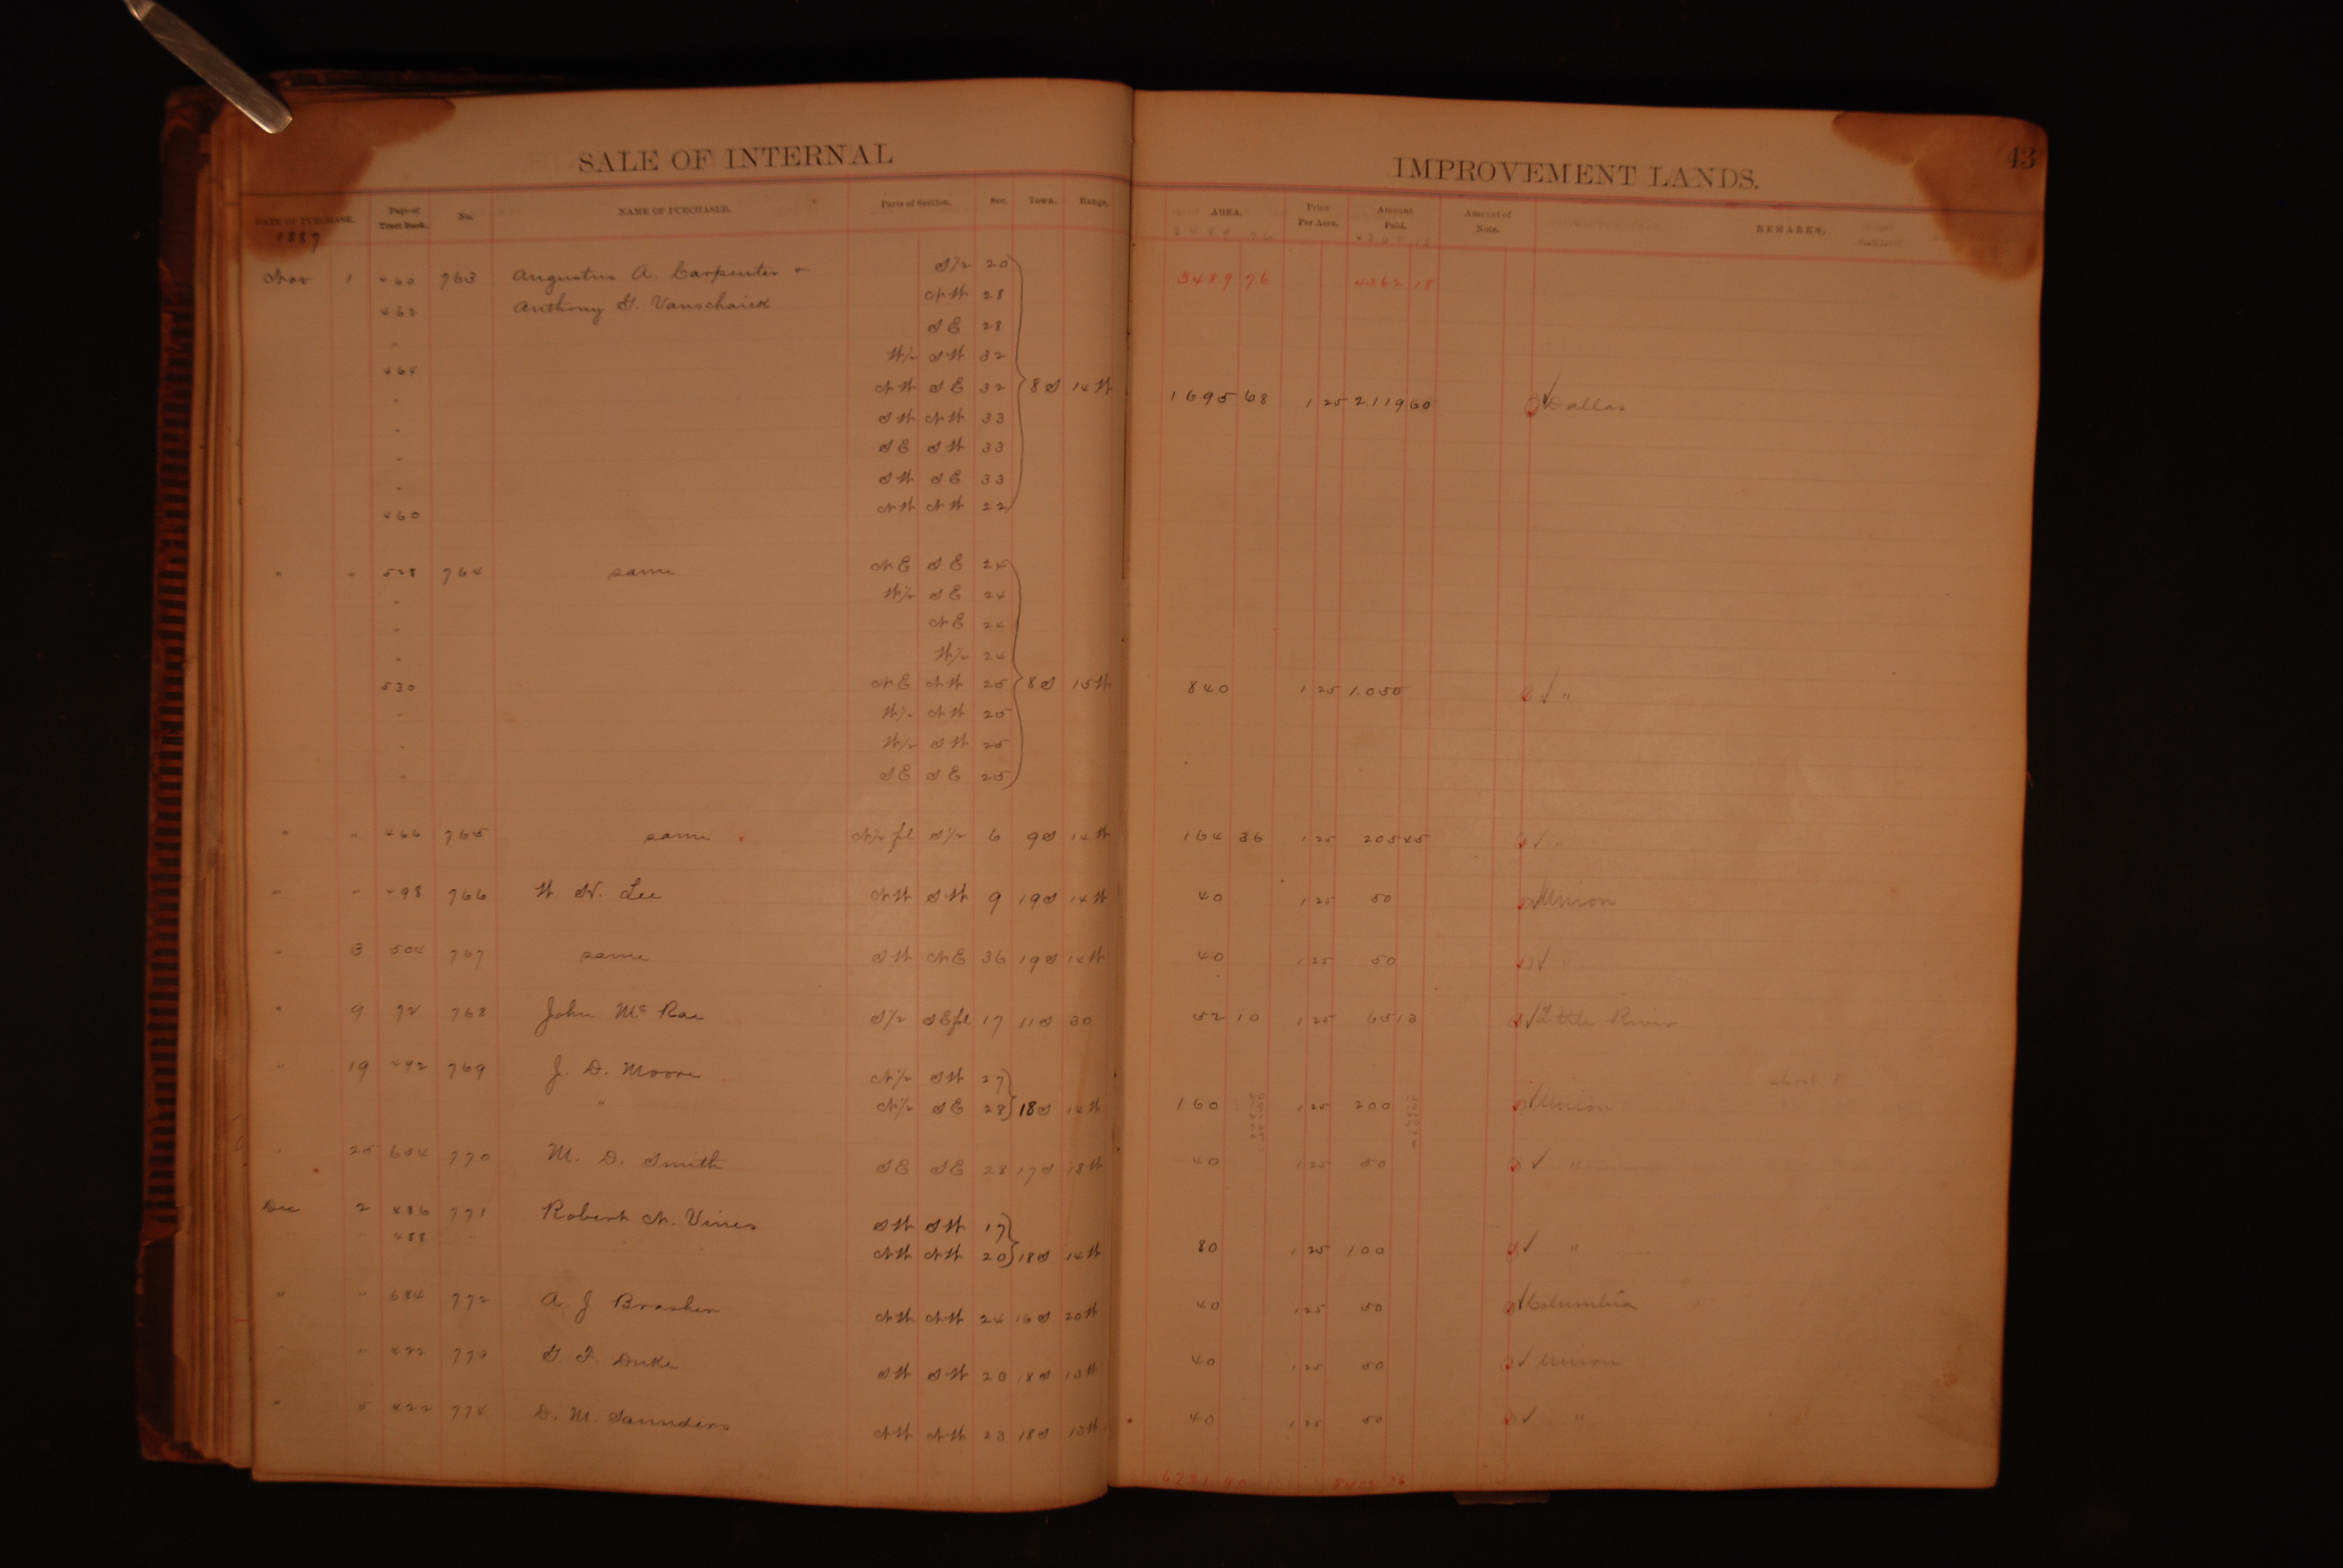 SALE OF INTERNAL IMPROVEMENT LANDS. 43
DATE OF PURCHASE. Page of Tract Book. No. NAME OF PURCHASER. Parts of Section. Sec. Town. Range. AREA. Price Per Acre. Amount Paid. Amount of Note. REMARKS.
1887
Nov 1 460 763 Augustus A. Carpenter & S½ 20 3489 76 4362 18
462 Anthony G. Vanschaick NW 28
" SE 28
464 W½ SW 32
" NW SE 32 8S 14W 1695 68 1 25 2.119 60 Dallas
" SW NW 33
" SE SW 33
" SW SE 33
460 NW NW 22
" " 528 764 same NE SE 24
" W½ SE 24
" NE 24
" W½ 24
530 NE NW 25 8S 15W 840 1 25 1.050 "
" W½ NW 25
" W½ SW 25
" SE SE 25
" " 466 765 same N½ fl S½ 6 9S 14W 164 36 1 25 205 45 "
" " 498 766 W. W. Lee NW SW 9 19S 14W 40 1 25 50 Union
" 3 504 767 same SW NE 36 19S 14W 40 1 25 50 "
" 9 72 768 John McRae S½ SE fl 17 11S 30 52 10 1 25 65 13 Little River
" 19 492 769 J. D. Moore N½ SW 27
" N½ SE 28 18S 14W 160 1 25 200 Union
" 25 604 770 M. D. Smith SE SE 28 17S 18W 40 1 25 50 "
Dec 2 486 771 Robert N. Vines SW SW 17
488 NW NW 20 18S 14W 80 1 25 100 "
" " 684 772 A. J Brasher NW NW 24 16S 20W 40 1 25 50 Columbia
" " 422 773 G. F. Duke SW SW 20 18S 13W 40 1 25 50 Union
" 5 422 774 D. M. Saunders NW NW 23 18S 13W 40 1 25 50 "